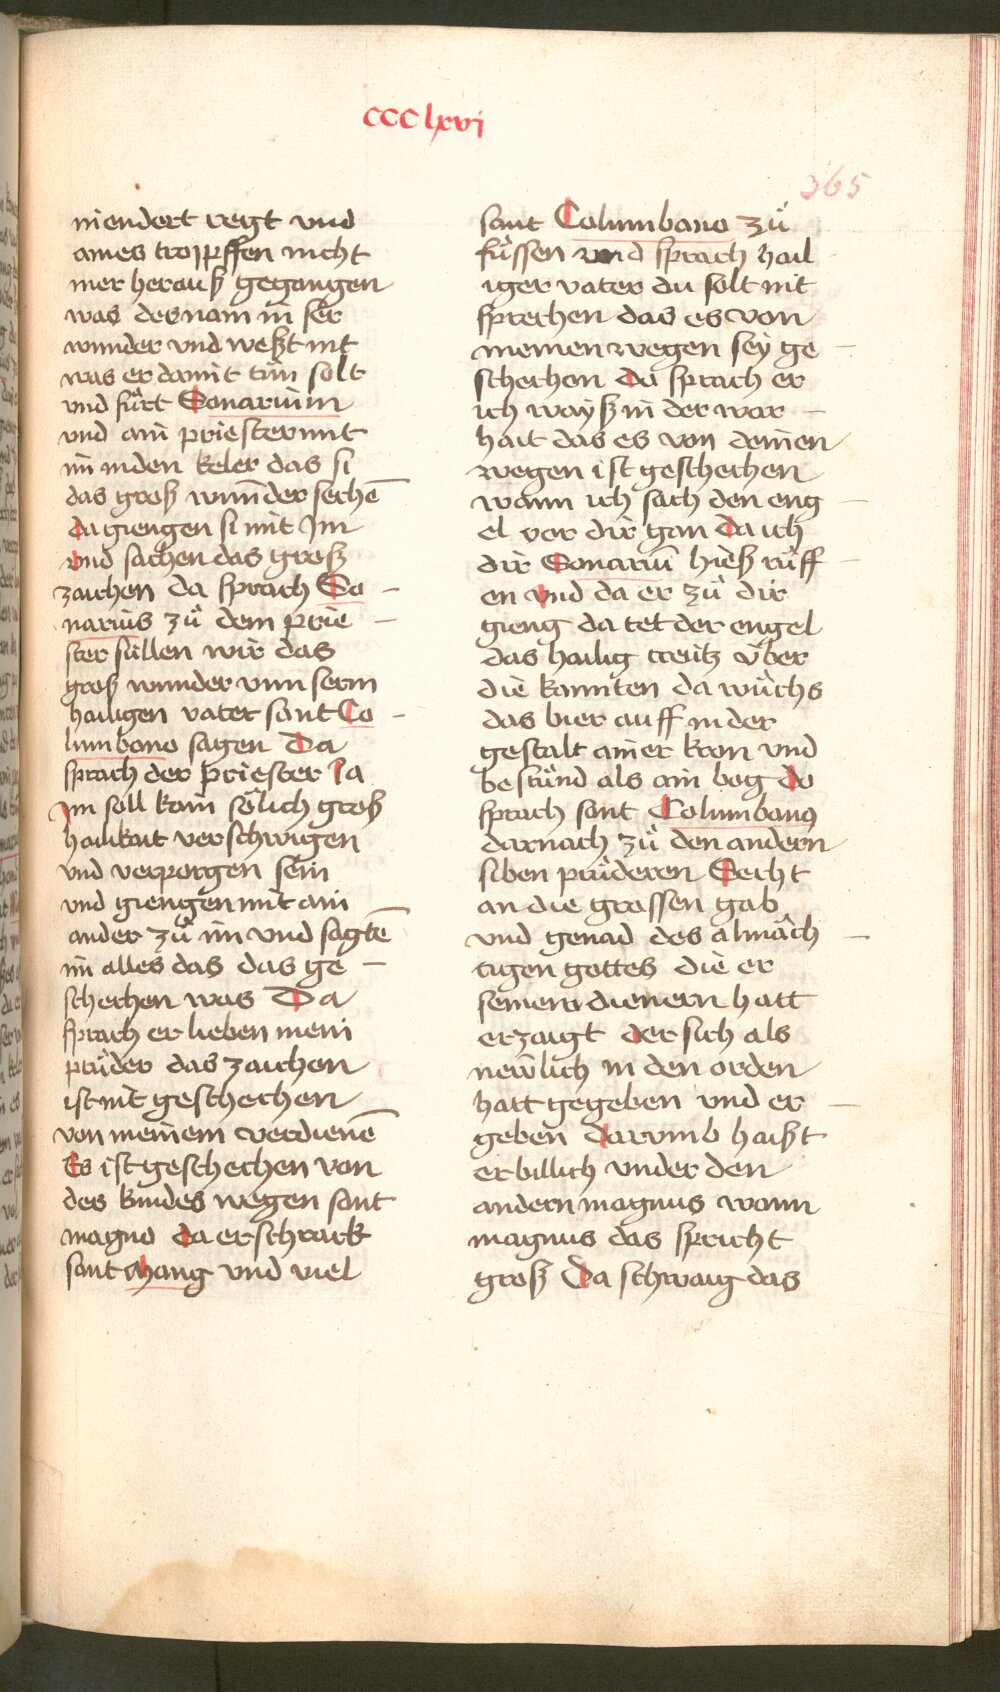 CCClxvi
365
niendert regt vnd
aines tropffen nicht
mer herauß gegangen
was des nam in ser
wunder vnd weßt nit
was er damit tůn solt
vnd fůrt Sonarium
vnd ain priester mit
im in den keler das si
das groß wunder sechē
da giengen si mit Im
vnd sachen das groß
zaichen da sprach So
narius zů dem prie
ster süllen wir das
groß wunder vnnserm
hailigen vater sant Co
lumbano sagen Da
sprach der priester Ia
Im soll kain sölich groß
hailikait verschwigen
vnd verporgen sein
vnd giengen mit ain
ander zů im vnd sagtē
im alles das das ge
schechen was Da
sprach er lieben mein
prüder das zaichen
ist nit geschechen
von meinem verdienē
Es ist geschechen von
des kindes wegen sant
magno da erschrack
sant Mang vnd viel
sant Columbano zů
füssen vnd sprach hail
iger vater du solt nit
sprechen das es von
meinen wegen sey ge
schechen Da sprach er
ich wayß in der war
hait das es von deinen
wegen ist geschechen
wann ich sach den eng
el vor dir gan Da ich
dir Sonariū hieß rüff
en vnd da er zů dir
gieng da tet der engel
das hailig creütz über
die kannten da wůchs
das bier auff in der
gestalt ainer kron vnd
bestůnd als ain bog Do
sprach sant Columbanus
darnach zů den andern
siben prüderen Secht
an die grossen gab
vnd genad des almäch
tigen gottes die er
seinem dienern hatt
erzaigt der sich als
newlich in den orden
hatt gegeben vnd er
geben darvmb haißt
er billich vnder den
andern magnus wann
magnus das spricht
groß Da schwaig das